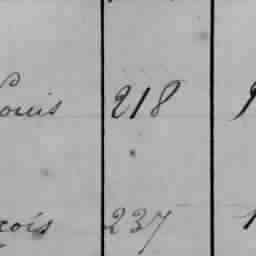 Louis 218 9
çois 237 1